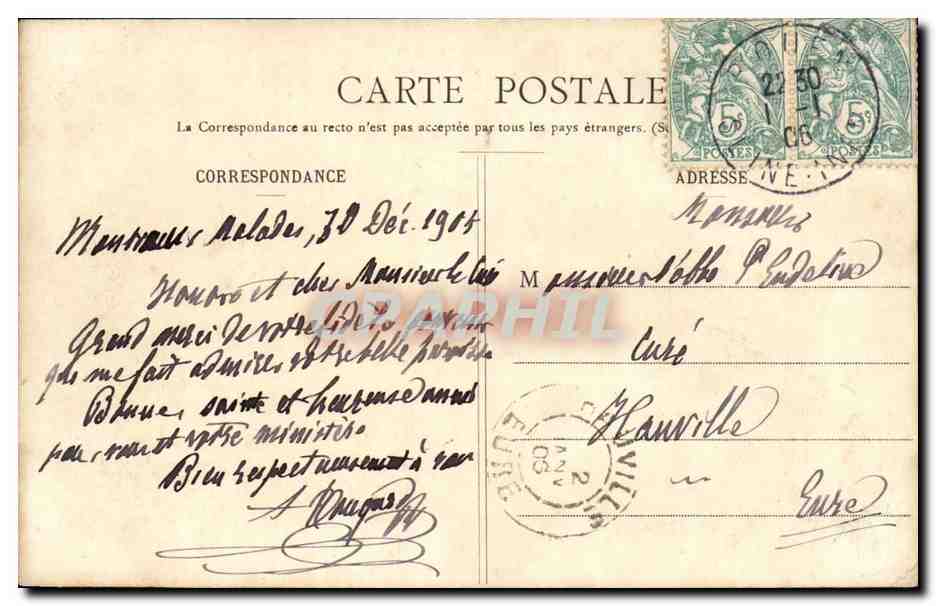 CARTE POSTALE
La Correspondance au recto n'est pas acceptée par tous les pays étrangers. (Se
CORRESPONDANCE
ADRESSE
5c 5c
POSTES POSTES
ROUEN
22 30
1 - 1
06
SEINE-INF
Malades, 30 Déc. 1905
Honoré et cher Monsieur le Curé
Grand merci de votre
qui me fait admirer votre belle paroisse
Bonne, sainte et heureuse année
pour vous et votre ministère
Bien respectueusement à vous
Monsieur
Monsieur l'abbé
Curé
Hauville
Eure
2
JANV
06
EURE
CPAPHIL